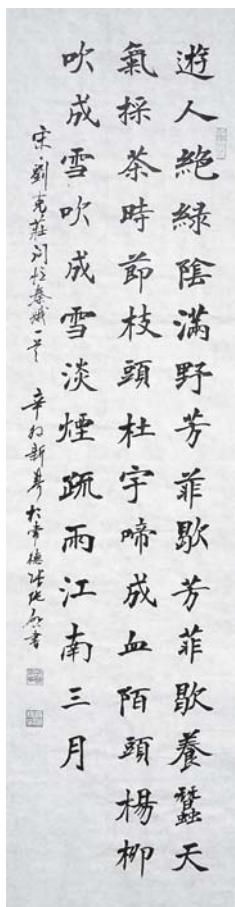 遊人絕綠陰滿野芳菲歇芳菲歇養蠶天
氣採茶時節枝頭杜宇啼成血陌頭楊柳
吹成雪吹成雪淡煙疏雨江南三月
宋劉克莊詞憶秦娥一首 辛卯新夏於常德